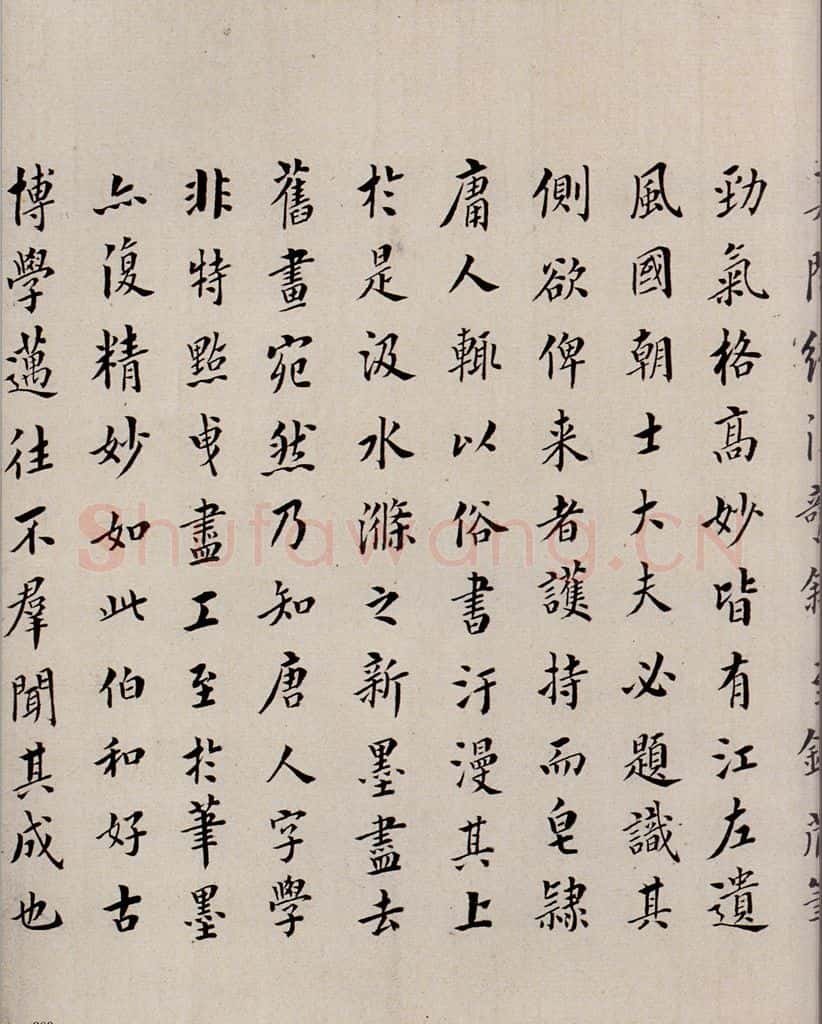 勁氣格高妙皆有江左遺
風國朝士大夫必題識其
側欲俾来者護持而皂隷
庸人輙以俗書汙漫其上
於是汲水滌之新墨盡去
舊畫宛然乃知唐人字學
非特點曳盡工至於筆墨
亦復精妙如此伯和好古
博學邁往不羣聞其成也
Shufawang.CN